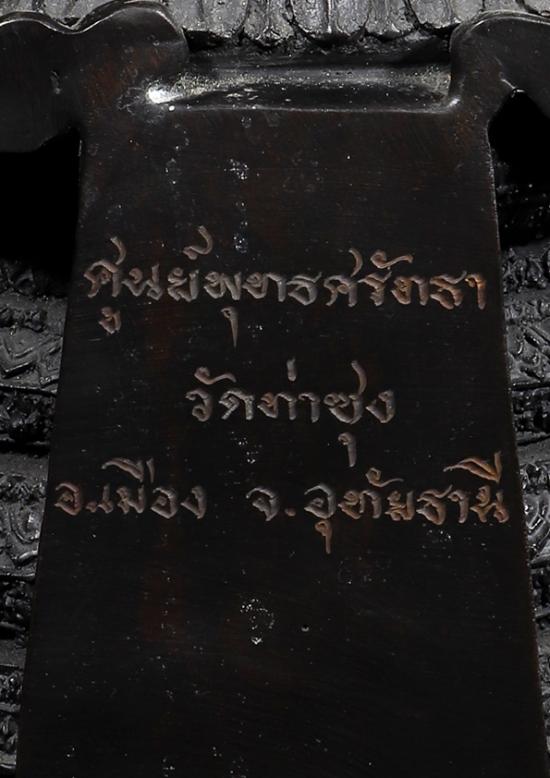 ศูนย์พุทธศรัทธา
วัดท่าซุง
อ.เมือง จ.อุทัยธานี